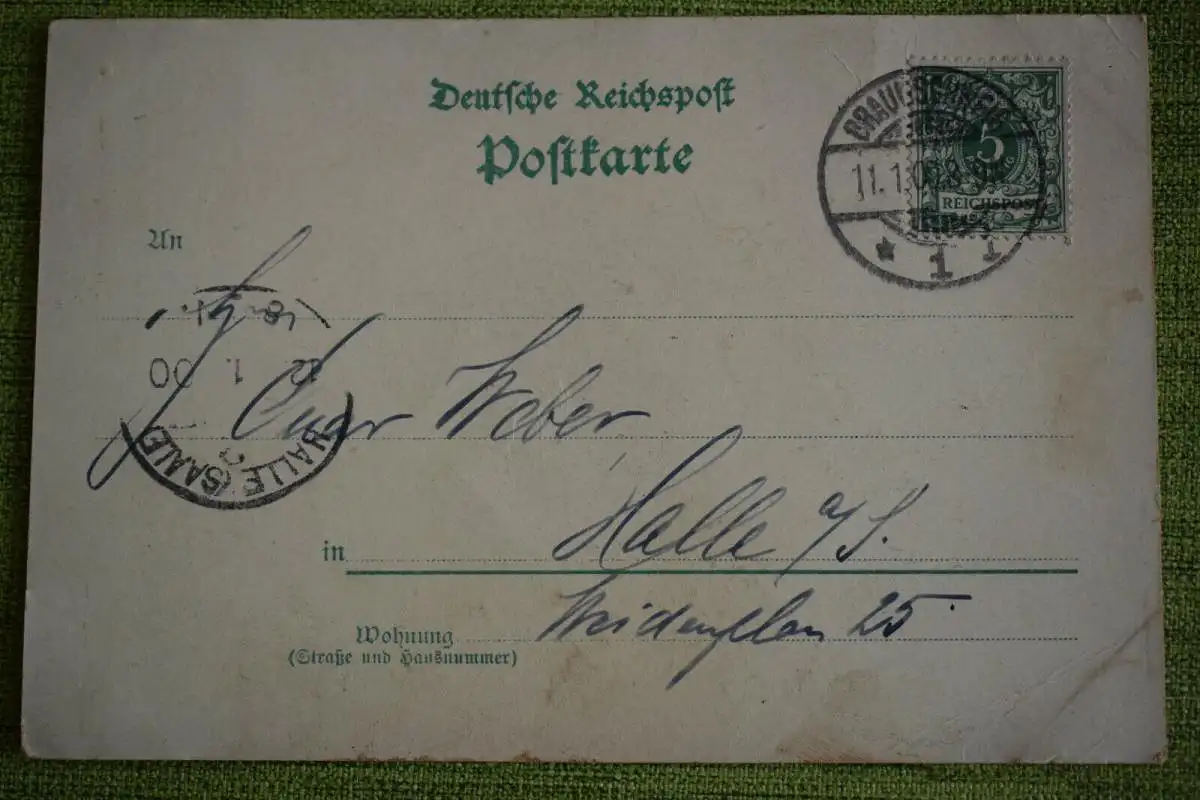 Deutsche Reichspost
Postkarte
BRAUNSCHWEIG
11.1.00
* 1 1
5
PFENNIG
REICHSPOST
An
12 1. 00
HALLE (SAALE)
Weber
in Halle a/S.
Wohnung Weidenplan 25
(Straße und Hausnummer)